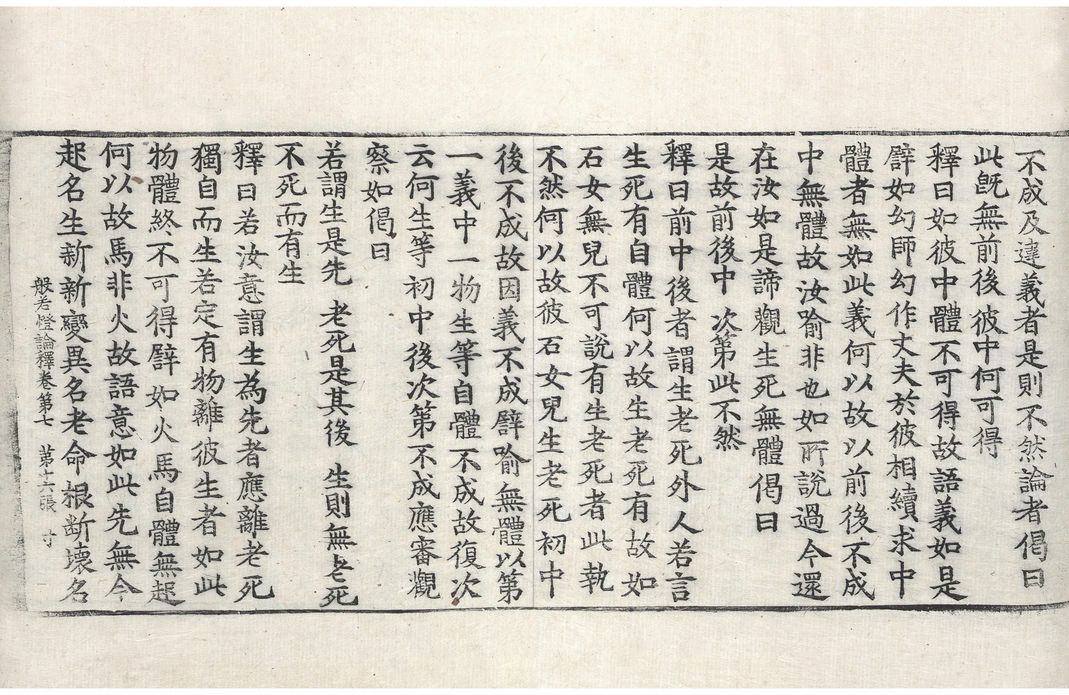 不成及違義者是則不然論者偈曰
此旣無前後彼中何可得
釋曰如彼中體不可得故語義如是
譬如幻師幻作丈夫於彼相續求中
體者無如此義何以故以前後不成
中無體故汝喻非也如所說過今還
在汝如是諦觀生死無體偈曰
是故前後中　次第此不然
釋曰前中後者謂生老死外人若言
生死有自體何以故生老死有故如
石女無兒不可說有生老死者此執
不然何以故彼石女兒生老死初中
後不成故因義不成譬喻無體以第
一義中一物生等自體不成故復次
云何生等初中後次第不成應審觀
察如偈曰
若謂生是先　老死是其後　生則無老死
不死而有生
釋曰若汝意謂生為先者應離老死
獨自而生若定有物離彼生者如此
物體終不可得譬如火馬自體無起
何以故馬非火故語意如此先無今
起名生新新變異名老命根断壞名
般若燈論釋卷第七　第十六張　寸